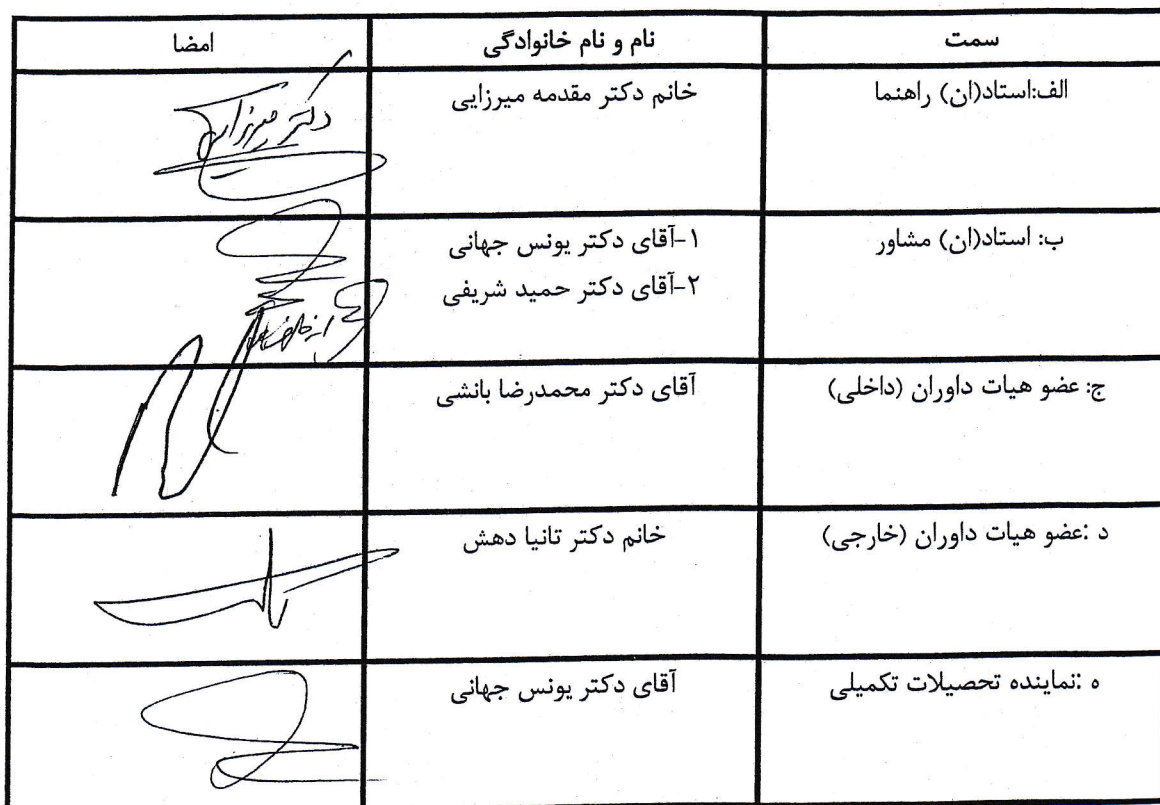 سمت	نام و نام خانوادگی	امضا
الف:استاد(ان) راهنما	خانم دکتر مقدمه میرزایی	دکتر میرزایی
ب: استاد(ان) مشاور	۱-آقای دکتر یونس جهانی
۲-آقای دکتر حمید شریفی
ج: عضو هیات داوران (داخلی)	آقای دکتر محمدرضا بانشی
د :عضو هیات داوران (خارجی)	خانم دکتر تانیا دهش
ه :نماینده تحصیلات تکمیلی	آقای دکتر یونس جهانی